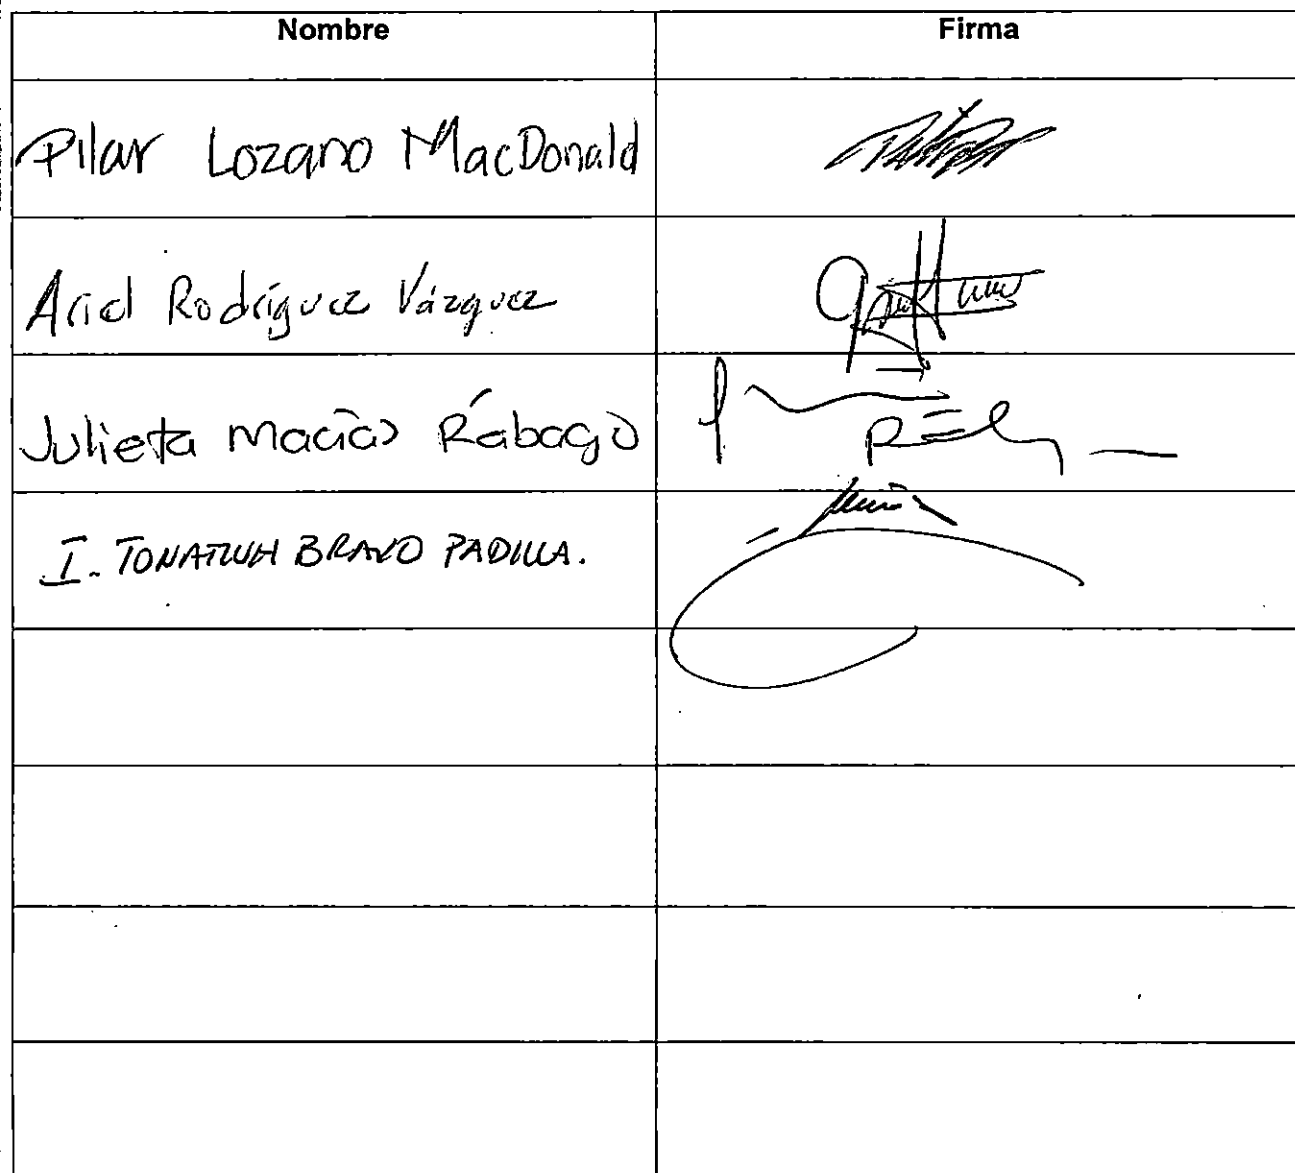 Nombre Firma
Pilar Lozano MacDonald
Ariel Rodríguez Vázquez
Julieta Macías Rábago
I. TONATIUH BRAVO PADILLA.